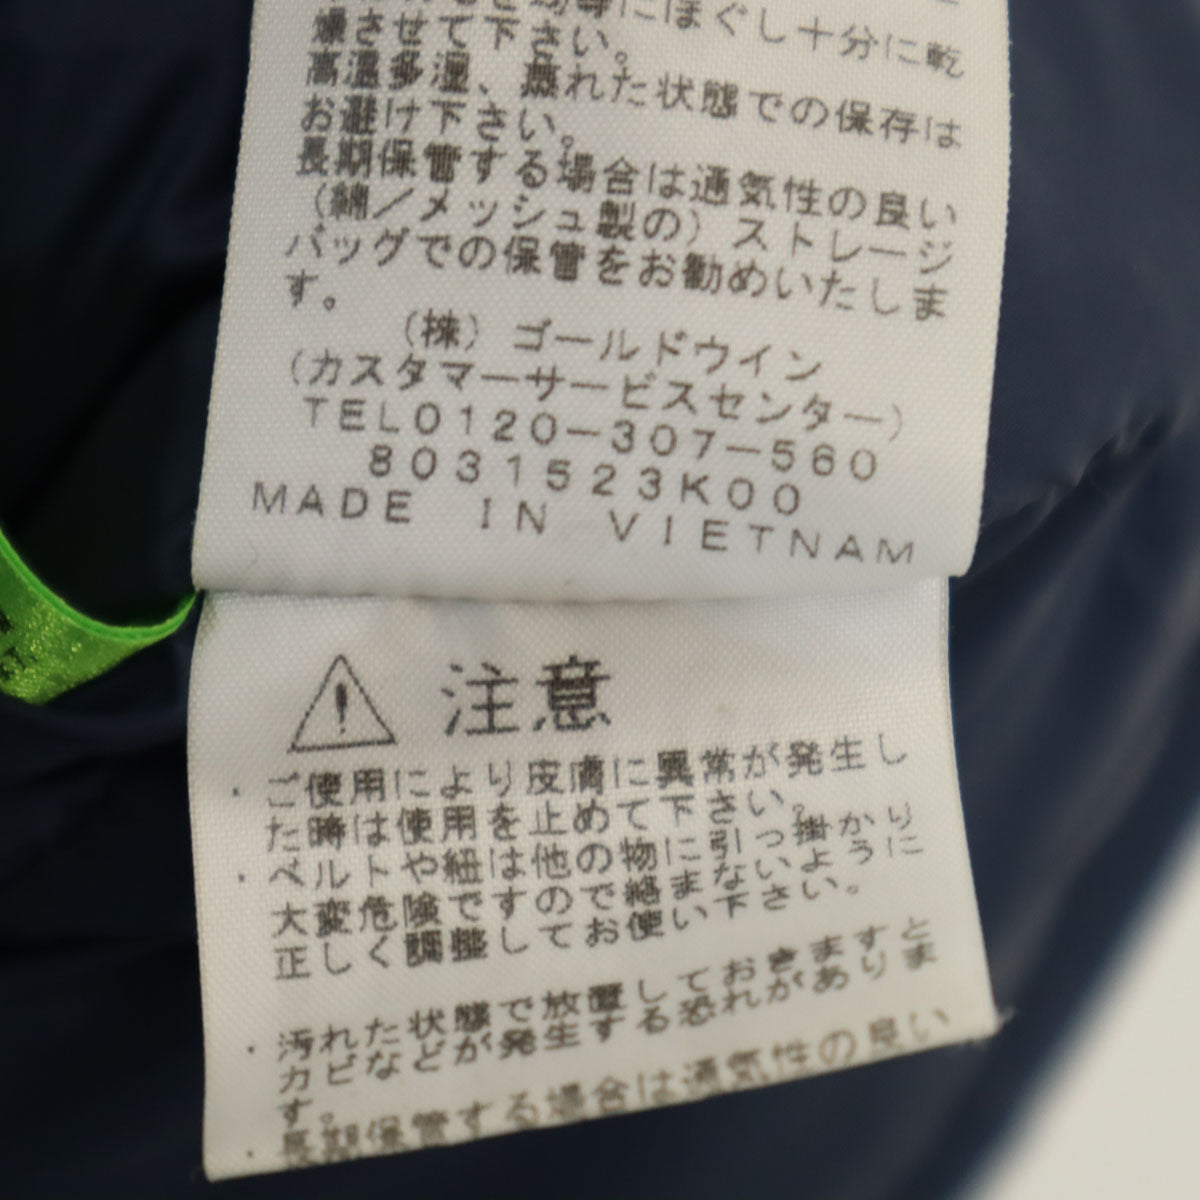 にほぐし十分に乾
燥させて下さい。
高温多湿、蒸れた状態での保存は
お避け下さい。
長期保管する場合は通気性の良い
（綿／メッシュ製の）ストレージ
バッグでの保管をお勧めいたしま
す。
（株）ゴールドウイン
（カスタマーサービスセンター）
TEL0120－307－560
8031523K00
MADE IN VIETNAM
注意
・ご使用により皮膚に異常が発生し
た時は使用を止めて下さい。
・ベルトや紐は他の物に引っ掛かり
大変危険ですので絡まないように
正しく調整してお使い下さい。
・汚れた状態で放置しておきますと
カビなどが発生する恐れがありま
す。
・長期保管する場合は通気性の良い